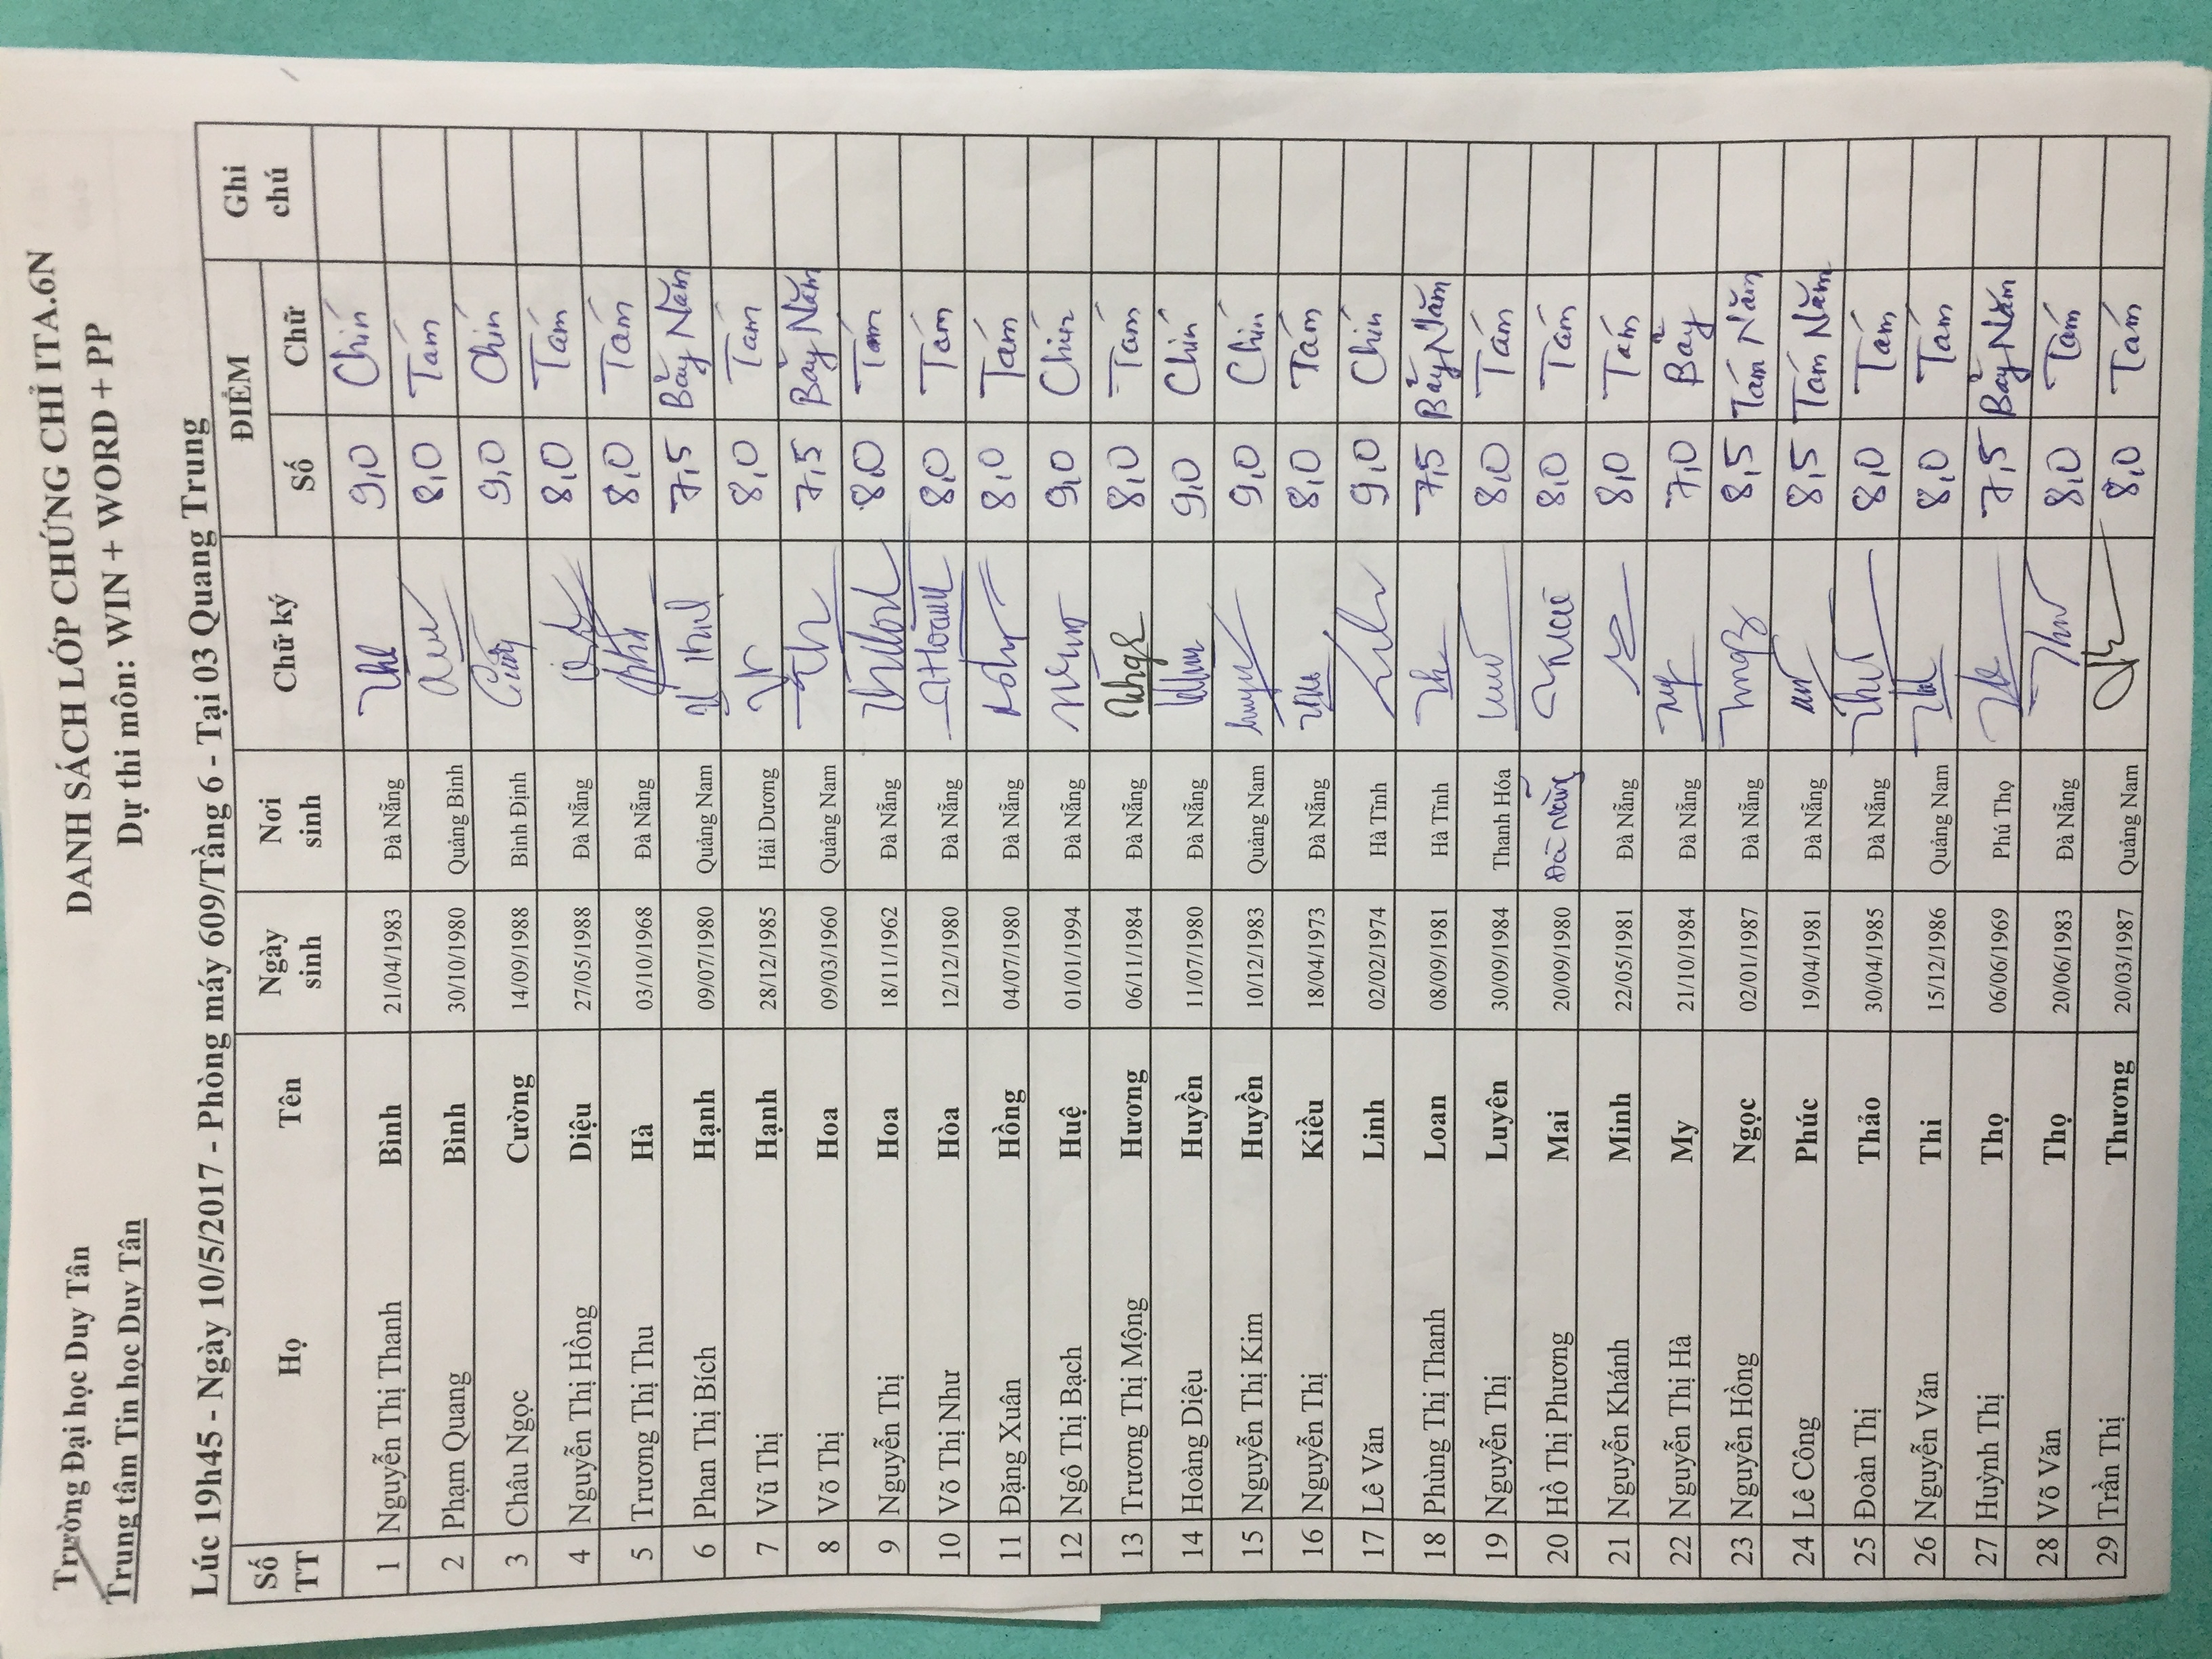 Trường Đại học Duy Tân
Trung tâm Tin học Duy Tân
DANH SÁCH LỚP CHỨNG CHỈ ITA.6N
Dự thi môn: WIN + WORD + PP
Lúc 19h45 - Ngày 10/5/2017 - Phòng máy 609/Tầng 6 - Tại 03 Quang Trung
Số TT Họ Tên Ngày sinh Nơi sinh Chữ ký ĐIỂM Số Chữ Ghi chú
1 Nguyễn Thị Thanh Bình 21/04/1983 Đà Nẵng 9,0 Chín
2 Phạm Quang Bình 30/10/1980 Quảng Bình 8,0 Tám
3 Châu Ngọc Cường 14/09/1988 Bình Định 9,0 Chín
4 Nguyễn Thị Hồng Diệu 27/05/1988 Đà Nẵng 8,0 Tám
5 Trương Thị Thu Hà 03/10/1968 Đà Nẵng 8,0 Tám
6 Phan Thị Bích Hạnh 09/07/1980 Quảng Nam 7,5 Bảy Năm
7 Vũ Thị Hạnh 28/12/1985 Hải Dương 8,0 Tám
8 Võ Thị Hoa 09/03/1960 Quảng Nam 7,5 Bảy Năm
9 Nguyễn Thị Hoa 18/11/1962 Đà Nẵng 8,0 Tám
10 Võ Thị Như Hòa 12/12/1980 Đà Nẵng 8,0 Tám
11 Đặng Xuân Hồng 04/07/1980 Đà Nẵng 8,0 Tám
12 Ngô Thị Bạch Huệ 01/01/1994 Đà Nẵng 9,0 Chín
13 Trương Thị Mộng Hương 06/11/1984 Đà Nẵng 8,0 Tám
14 Hoàng Diệu Huyền 11/07/1980 Đà Nẵng 9,0 Chín
15 Nguyễn Thị Kim Huyền 10/12/1983 Quảng Nam 9,0 Chín
16 Nguyễn Thị Kiều 18/04/1973 Đà Nẵng 8,0 Tám
17 Lê Văn Linh 02/02/1974 Hà Tĩnh 9,0 Chín
18 Phùng Thị Thanh Loan 08/09/1981 Hà Tĩnh 7,5 Bảy Năm
19 Nguyễn Thị Luyên 30/09/1984 Thanh Hóa 8,0 Tám
20 Hồ Thị Phương Mai 20/09/1980 Đà Nẵng 8,0 Tám
21 Nguyễn Khánh Minh 22/05/1981 Đà Nẵng 8,0 Tám
22 Nguyễn Thị Hà My 21/10/1984 Đà Nẵng 7,0 Bảy
23 Nguyễn Hồng Ngọc 02/01/1987 Đà Nẵng 8,5 Tám Năm
24 Lê Công Phúc 19/04/1981 Đà Nẵng 8,5 Tám Năm
25 Đoàn Thị Thảo 30/04/1985 Đà Nẵng 8,0 Tám
26 Nguyễn Văn Thi 15/12/1986 Quảng Nam 8,0 Tám
27 Huỳnh Thị Thọ 06/06/1969 Phú Thọ 7,5 Bảy Năm
28 Võ Văn Thọ 20/06/1983 Đà Nẵng 8,0 Tám
29 Trần Thị Thương 20/03/1987 Quảng Nam 8,0 Tám